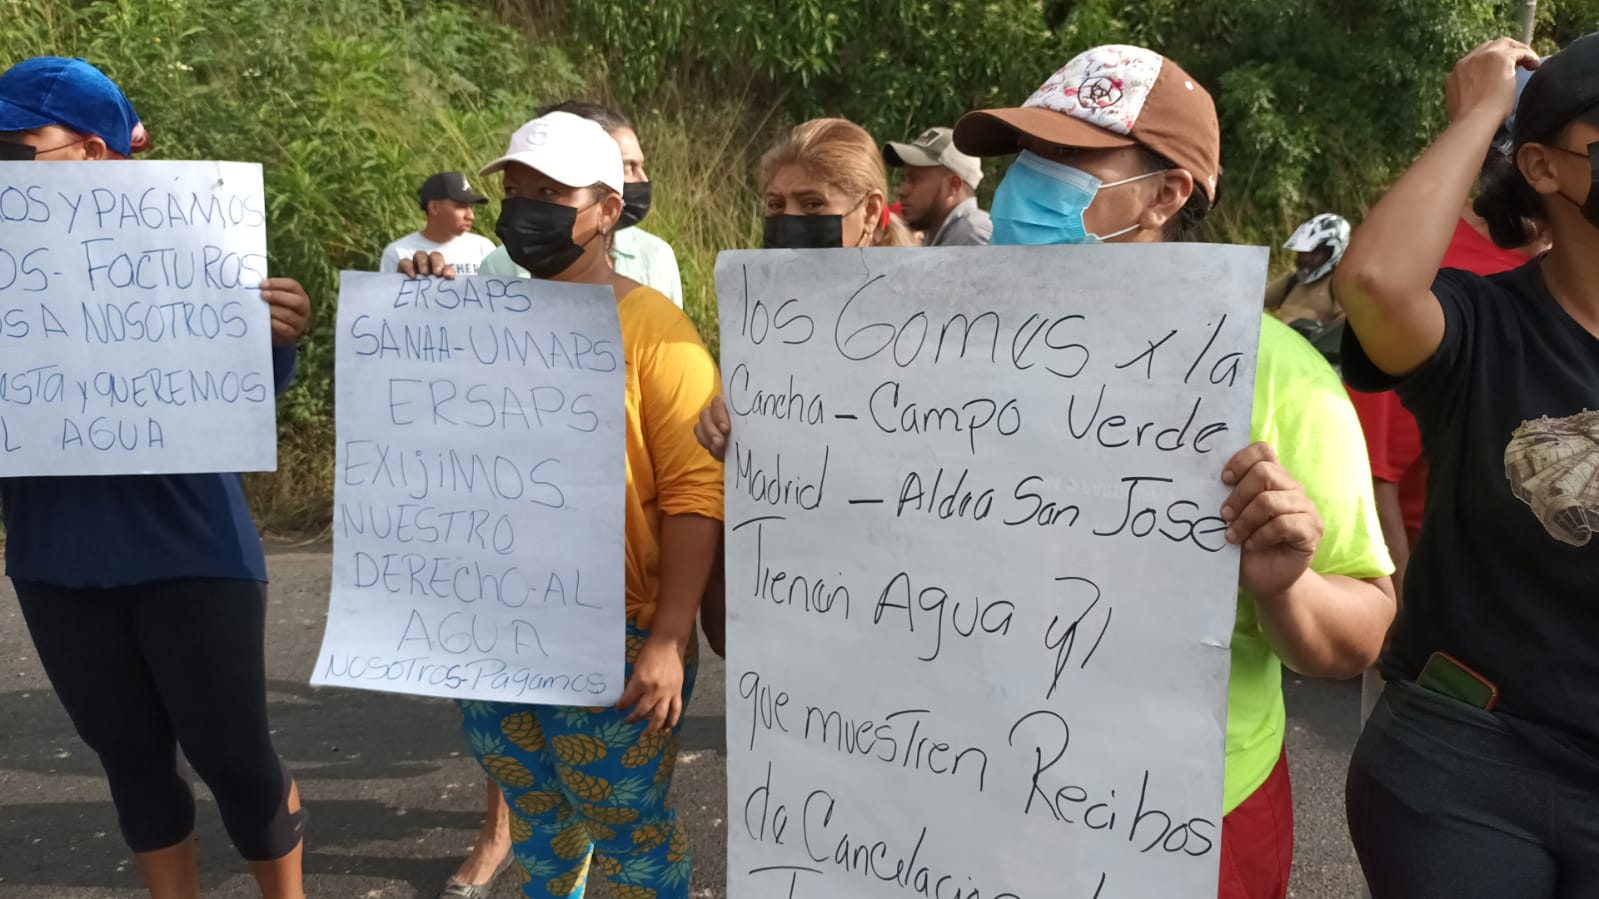 OS Y PAGÁMOS
OS - FACTURAS
OS A NOSOTROS
ASTA y QUEREMOS
L AGUA
ERSAPS
SANAA-UMAPS
ERSAPS
EXIJIMOS
NUESTRO
DERECHO-AL
AGUA
NOSOTROS-Pagamos
los Gomes x la
Cancha - Campo Verde
Madrid - Aldea San Jose
Tienen Agua y
que muestren Recibos
de Cancelacion